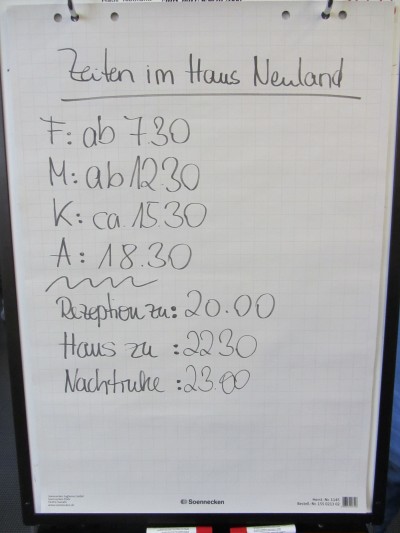 Zeiten im Haus Neuland
F: ab 7.30
M: ab 12.30
K: ca. 15.30
A: 18.30
Rezeption zu: 20.00
Haus zu : 22 30
Nachtruhe : 23.00
Soennecken